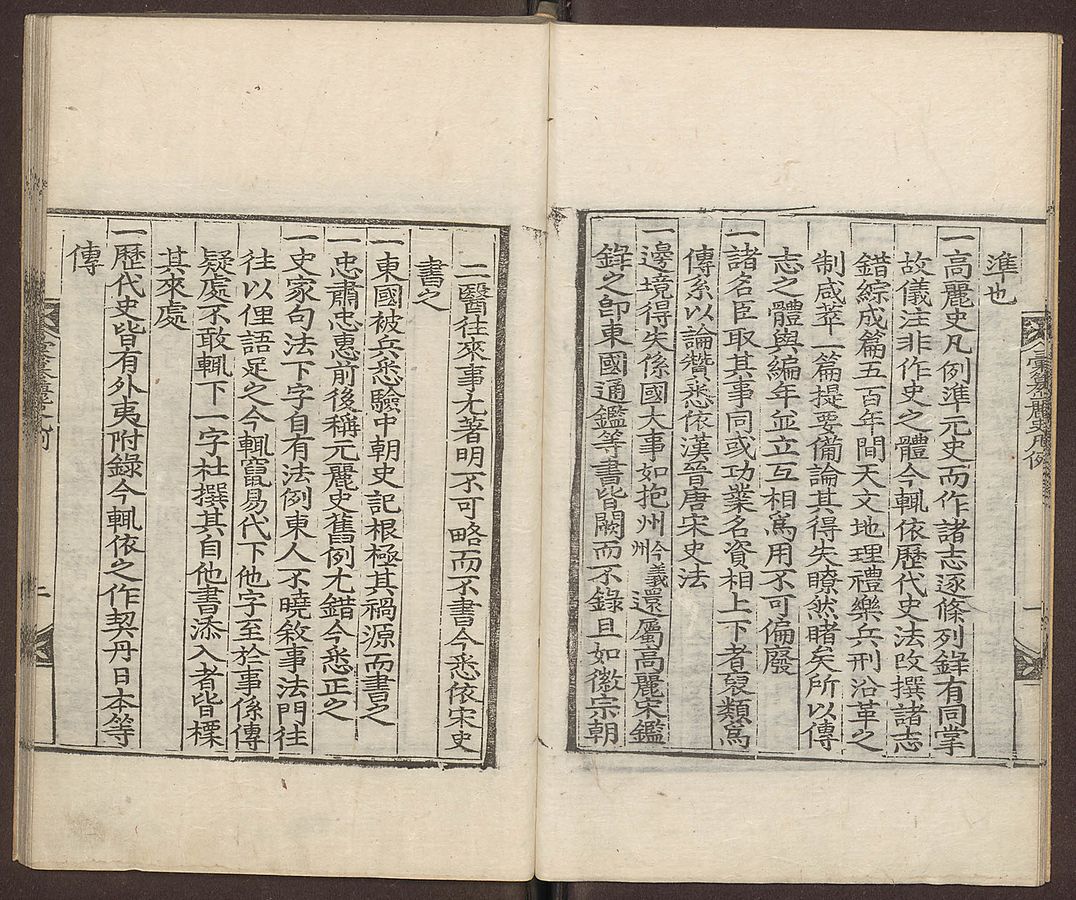 準也
一高麗史凡例準元史而作諸志逐條列錄有同掌
故儀注非作史之體今輒依歷代史法改撰諸志
錯綜成篇五百年間天文地理禮樂兵刑沿革之
制咸萃一篇提要備論其得失瞭然睹矣所以傳
志之體與編年並立互相爲用不可偏廢
一諸名臣取其事同或功業名資相上下者裒類爲
傳系以論贊悉依漢晉唐宋史法
一邊境得失係國大事如抱州今義州還屬高麗宋鑑
錄之卽東國通鑑等書皆闕而不錄且如徽宗朝
二醫往來事尤著明不可略而不書今悉依宋史
書之
一東國被兵悉驗中朝史記根極其禍源而書之
一忠肅忠惠前後稱元麗史舊例尤錯今悉正之
一史家句法下字自有法例東人不曉敘事法門往
往以俚語足之今輒竄易代下他字至於事係傳
疑處不敢輒下一字杜撰其自他書添入者皆標
其來處
一歷代史皆有外夷附錄今輒依之作契丹日本等
傳
彙纂麗史凡例
一
二